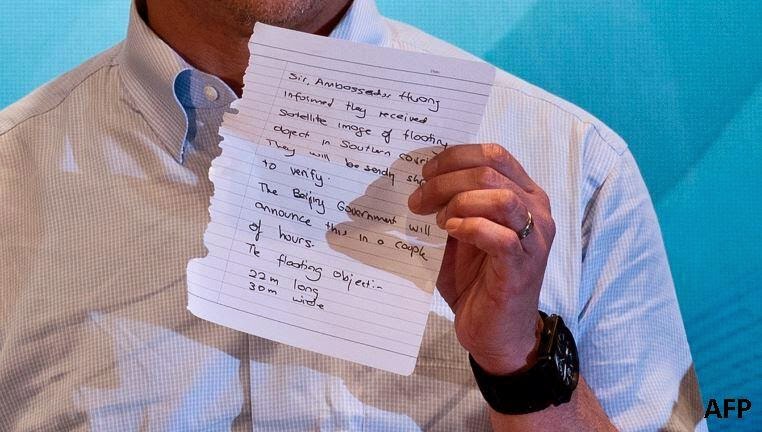 Sir, Ambassador Huang
informed they received
satellite image of floating
object in Southern corri
They will be sending sh
to verify.
The Beijing Government will
announce this in a couple
of hours.
The floating object:-
22m long
30m wide
AFP